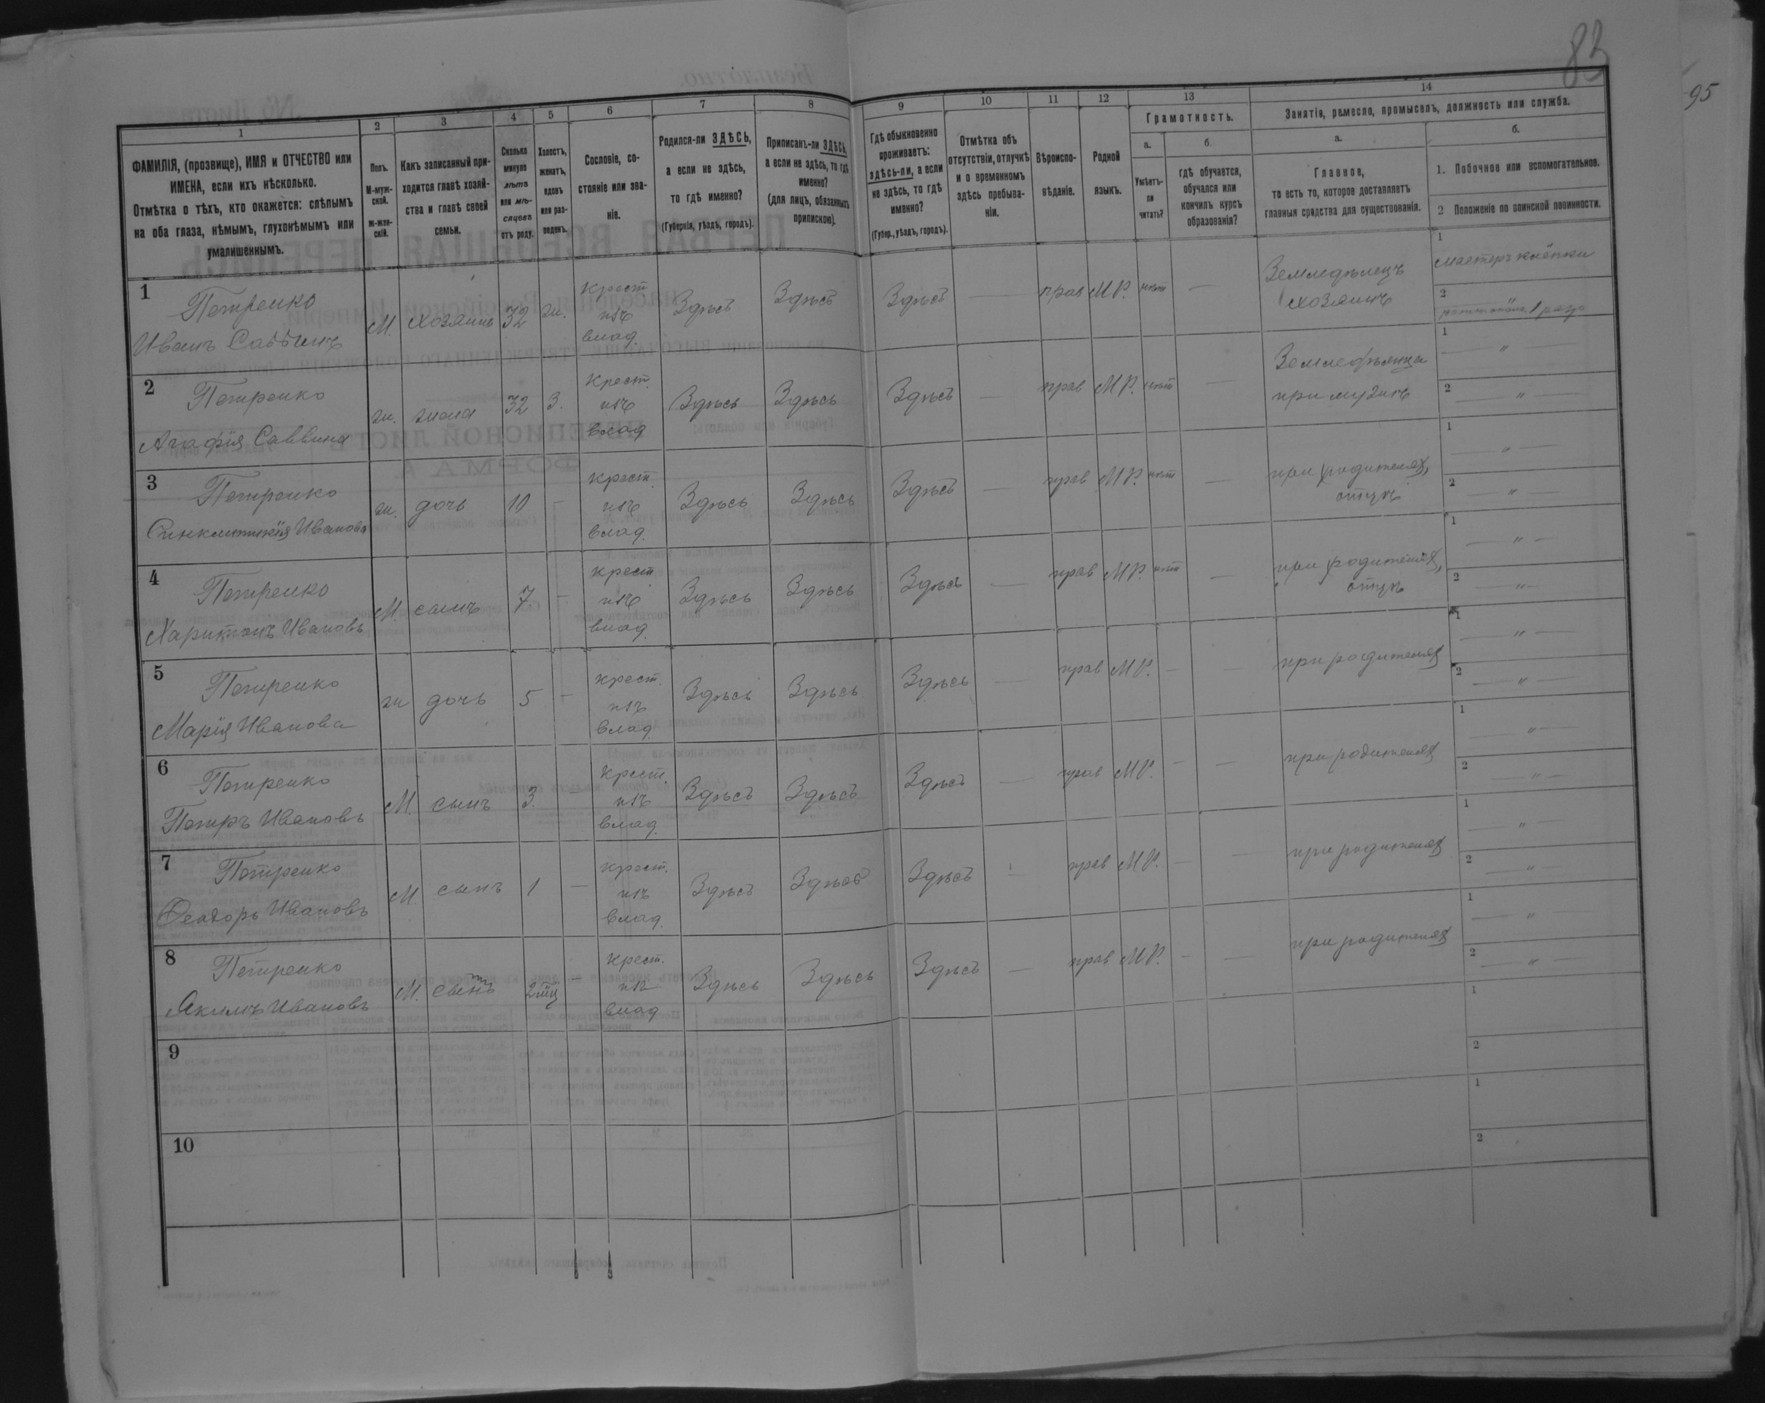 83
95
1
2
3
4
5
6
7
8
9
10
11
12
13
14
ФАМИЛІЯ, (прозвище), ИМЯ и ОТЧЕСТВО или
ИМЕНА, если ихъ нѣсколько.
Отмѣтка о тѣхъ, кто окажется: слѣпымъ
на оба глаза, нѣмымъ, глухонѣмымъ или
умалишеннымъ.
Полъ.
М-муж-
ской.
Ж-жен-
скій.
Какъ записанный при-
ходится главѣ хозяй-
ства и главѣ своей
семьи.
Сколько
минуло
лѣтъ
или мѣ-
сяцевъ
отъ роду.
Холостъ,
женатъ,
вдовъ
или раз-
веденъ.
Сословіе, со-
стояніе или зва-
ніе.
Родился-ли ЗДѢСЬ,
а если не здѣсь,
то гдѣ именно?
(Губернія, уѣздъ, городъ).
Приписанъ-ли ЗДѢСЬ,
а если не здѣсь, то гдѣ
именно?
(для лицъ, обязанныхъ
припискою).
Гдѣ обыкновенно
проживаетъ:
здѣсь-ли, а если
не здѣсь, то гдѣ
именно?
(Губер., уѣздъ, городъ).
Отмѣтка объ
отсутствіи, отлучкѣ
и о временномъ
здѣсь пребыва-
ніи.
Вѣроиспо-
вѣданіе.
Родной
языкъ.
Грамотность.
а.
Умѣетъ-
ли
читать?
б.
гдѣ обучается,
обучался или
кончилъ курсъ
образованія?
Занятіе, ремесло, промыселъ, должность или служба.
а.
Главное,
то есть то, которое доставляетъ
главныя средства для существованія.
б.
1. Побочное или вспомогательное.
2 Положеніе по воинской повинности.
1 Петренко
Иванъ Саввинъ М. хозяинъ 32 ж. Крест. изъ влад. Здѣсь Здѣсь Здѣсь — прав М.Р. нѣт — Земледѣлецъ хозяинъ 1 2
2 Петренко
Агафія Саввина ж. жена 32 З. Крест. изъ влад Здѣсь Здѣсь Здѣсь — прав М.Р. нѣт — Земледѣлица при мужѣ 1 — " — 2 — " —
3 Петренко
Синклитикія Иванова ж. дочь 10 — Крест. изъ влад. Здѣсь Здѣсь Здѣсь — прав М.Р. нѣт — при родителях, 1 — " — 2 — " —
4 Петренко
Харитонъ Ивановъ М. сынъ 7. — Крест. изъ влад. Здѣсь Здѣсь Здѣсь — прав М.Р. нѣт — при родителях, 1 — " — 2 — " —
5 Петренко
Марія Иванова ж дочь 5 — Крест. изъ влад. Здѣсь Здѣсь Здѣсь — прав М.Р. — — при родителях 1 — " — 2 — " —
6 Петренко
Петръ Ивановъ М. сынъ 3. — Крест. изъ влад. Здѣсь Здѣсь Здѣсь — прав М.Р. — — при родителях 1 — " — 2 — " —
7 Петренко
Ѳеодоръ Ивановъ М. сынъ 1 — Крест. изъ влад. Здѣсь Здѣсь Здѣсь прав М.Р. — — при родителях 1 — " — 2 — " —
8 Петренко
Якимъ Ивановъ М. сынъ 2 мц — Крест. изъ влад Здѣсь Здѣсь Здѣсь — прав М.Р. — — при родителях 1 — " — 2 — " —
9 1 2
10 1 2